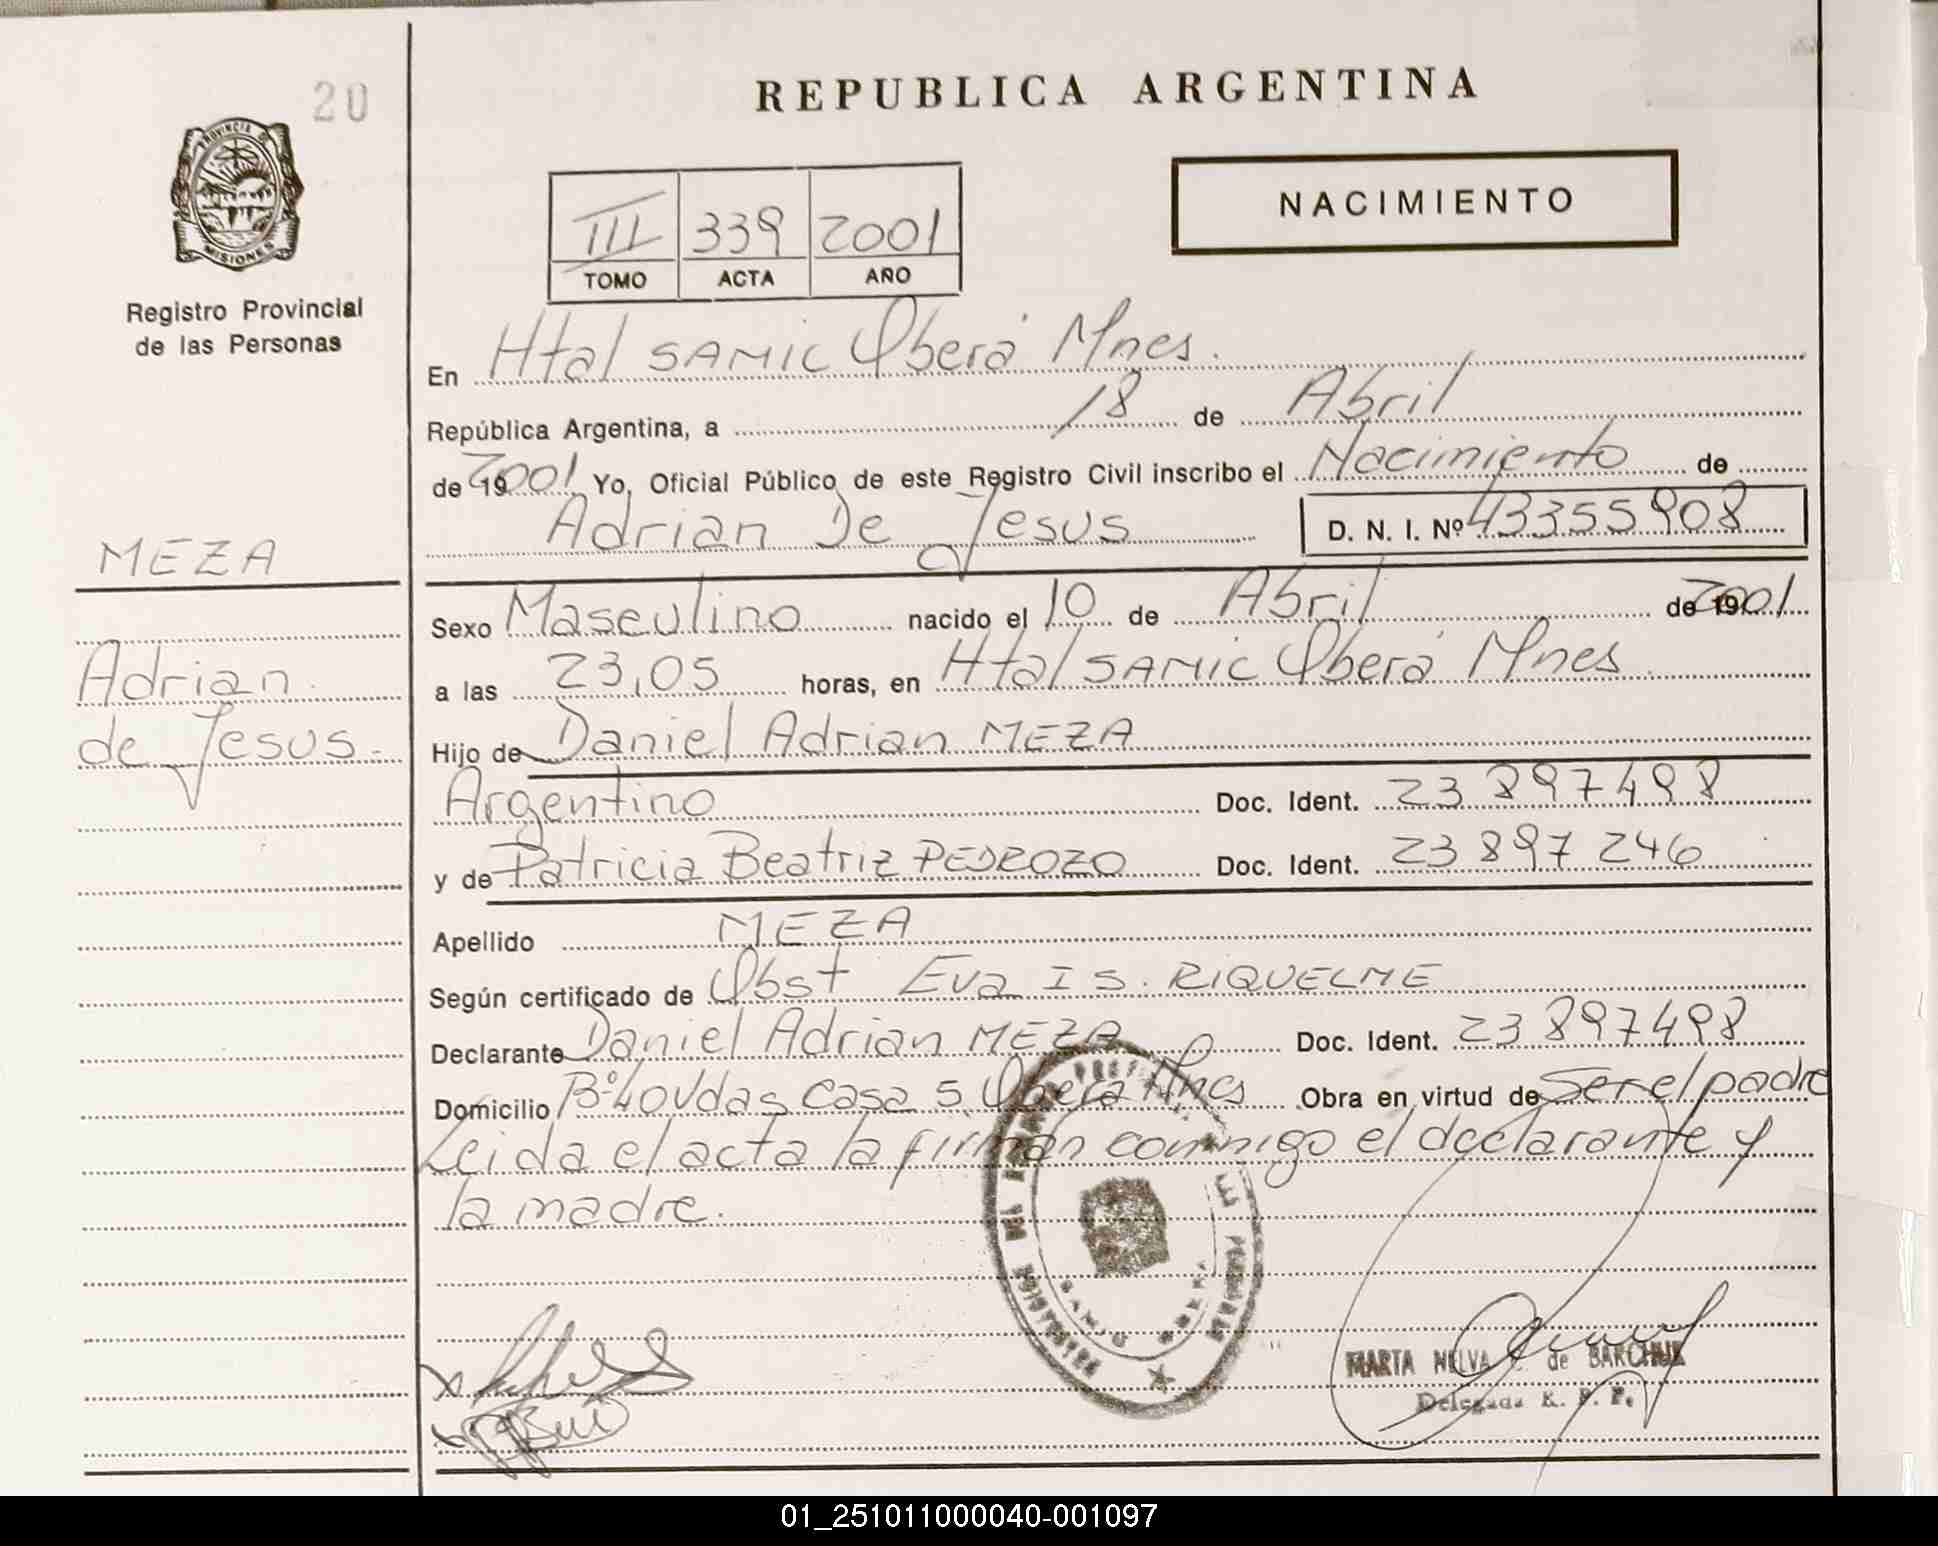 20
PROVINCIA DE
MISIONES
Registro Provincial
de las Personas
MEZA
Adrian
de Jesus.
REPUBLICA ARGENTINA
NACIMIENTO
III 339 2001
TOMO ACTA AÑO
En Htal SAMIC Oberá Mnes.
República Argentina, a 18 de Abril
de 19 2001 Yo, Oficial Público de este Registro Civil inscribo el Nacimiento de
Adrian De Jesus D. N. I. Nº 43355908
Sexo Masculino nacido el 10 de Abril de 19 2001
a las 23,05 horas, en Htal SAMIC Oberá Mnes.
Hijo de Daniel Adrian MEZA
Argentino Doc. Ident. 23 897498
y de Patricia Beatriz PEDROZO Doc. Ident. 23 897 246
Apellido MEZA
Según certificado de Obst Eva IS. RIQUELME
Declarante Daniel Adrian MEZA Doc. Ident. 23 897498
Domicilio Bº 40 Vdas casa 5 Oberá Mnes Obra en virtud de Ser el padre
Leida el acta la firman conmigo el declarante y
la madre.
MARTA NELVA de BARCHUK
Delegada R. P. P.
01_251011000040-001097